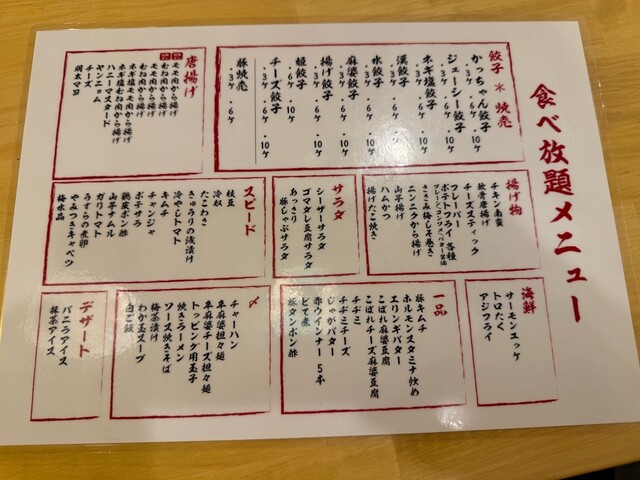 食べ放題メニュー
餃子 ✕ 焼売
かっちゃん餃子
・3ヶ ・6ヶ ・10ヶ
ジューシー餃子
・3ヶ ・6ヶ ・10ヶ
ネギ塩餃子
・3ヶ ・6ヶ ・10ヶ
漢餃子
・3ヶ ・6ヶ ・10ヶ
水餃子
・3ヶ ・6ヶ ・10ヶ
麻婆餃子
・3ヶ ・6ヶ ・10ヶ
揚げ餃子
・3ヶ ・6ヶ ・10ヶ
姫餃子
・6ヶ ・10ヶ
チーズ餃子
・3ヶ ・6ヶ ・10ヶ
豚焼売
・3ヶ ・6ヶ
唐揚げ
モモ肉から揚げ
むね肉から揚げ
モモ肉から揚げ
むね肉から揚げ
ネギ塩モモ肉から揚げ
ネギ塩むね肉から揚げ
ハニーマスタード
ヤンニョム
チーズ
明太マヨ
揚げ物
チキン南蛮
軟骨唐揚げ
チーズスティック
フレーバー
ポテトフライ各種
ささみ梅しそ巻き
ニンニクから揚げ
山芋揚げ
ハムかつ
揚げたこ焼き
サラダ
シーザーサラダ
ゴマダレ豆腐サラダ
あっさり
豚しゃぶサラダ
スピード
枝豆
冷奴
たこわさ
きゅうりの浅漬け
冷やしトマト
キムチ
チャンジャ
ポテサラ
鶏皮ポン酢
山芋ナムル
ガリトマト
うずらの煮卵
やみつきキャベツ
梅水晶
海鮮
サーモンユッケ
トロたく
アジフライ
一品
豚キムチ
ホルモンスタミナ炒め
エリンギバター
こぼれ麻婆豆腐
こぼれチーズ麻婆豆腐
チヂミ
チヂミチーズ
じゃがバター
赤ウインナー5本
とて煮
豚タンポン酢
〆
チャーハン
卑麻婆担々麺
卑麻婆チーズ担々麺
トッピング用玉子
焼きラーメン
ソース焼きそば
梅茶漬け
わか玉スープ
白ご飯
デザート
バニラアイス
抹茶アイス